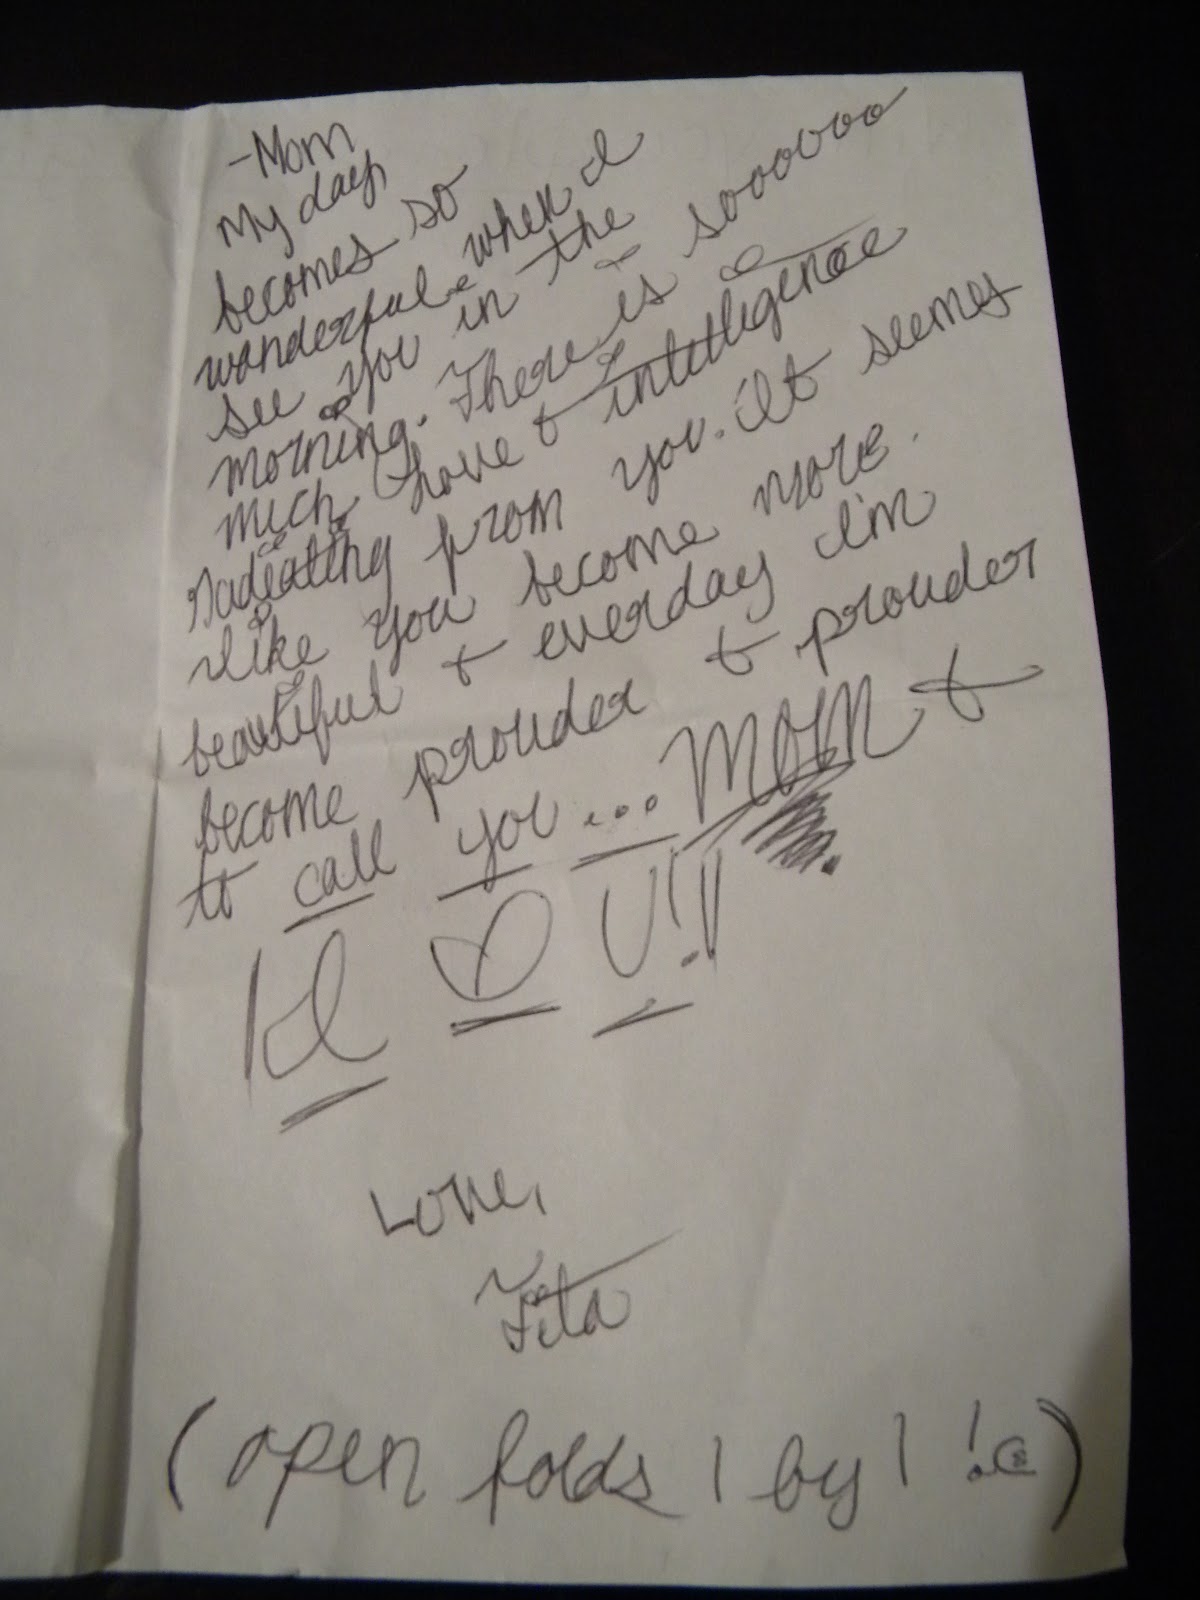 -Mom
My day
becomes so
wonderful when I
see you in the
morning. There is sooooooo
much love & intelligence
radeating from you. It seemes
like you become more
beautiful & everday I'm
become prouder & prouder
to call you... MOM &
I ♡ U!!
Love,
Tita
(open folds 1 by 1 !☺)